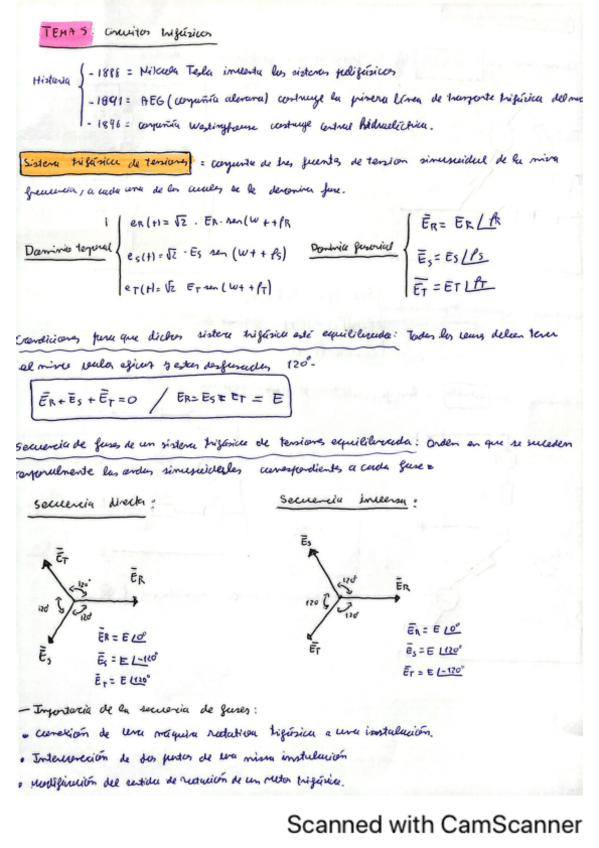 TEMA 5: Circuitos trifásicos
Historia
- 1888 = Nikola Tesla inventa los sistemas polifásicos
- 1891 = AEG (compañía alemana) construye la primera línea de transporte trifásica del mundo
- 1896 = compañía Westinghouse construye central hidroeléctrica.
Sistema trifásico de tensiones = conjunto de tres fuentes de tensión sinusoidal de la misma
frecuencia, a cada una de las cuales se le denomina fase.
Dominio temporal
eR(t) = √2 · ER · sen(wt + φR
eS(t) = √2 · ES sen (wt + φS)
eT(t) = √2 ET sen (wt + φT)
Dominio fasorial
ĒR = ER∠φR
ĒS = ES∠φS
ĒT = ET∠φT
Condiciones para que dicho sistema trifásico esté equilibrado: Todas las deben tener
el mismo valor eficaz y estar desfasadas 120°.
ĒR + ĒS + ĒT = 0 / ER = ES = ET = E
Secuencia de fases de un sistema trifásico de tensiones equilibrada: Orden en que se suceden
temporalmente las ondas sinusoidales correspondientes a cada fase.
Secuencia directa:
Secuencia inversa:
ĒT
120°
ĒR
120°
120°
ĒS
ĒR = E∠0°
ĒS = E∠-120°
ĒT = E∠120°
ĒS
120°
ĒR
120
120°
ĒT
ĒR = E∠0°
ēS = E∠120°
ĒT = E∠-120°
- Importancia de la secuencia de fases:
• Conexión de una máquina rotativa trifásica a una instalación.
• Interconexión de dos puntos de una misma instalación
• Modificación del sentido de rotación de un motor trifásico.
Scanned with CamScanner